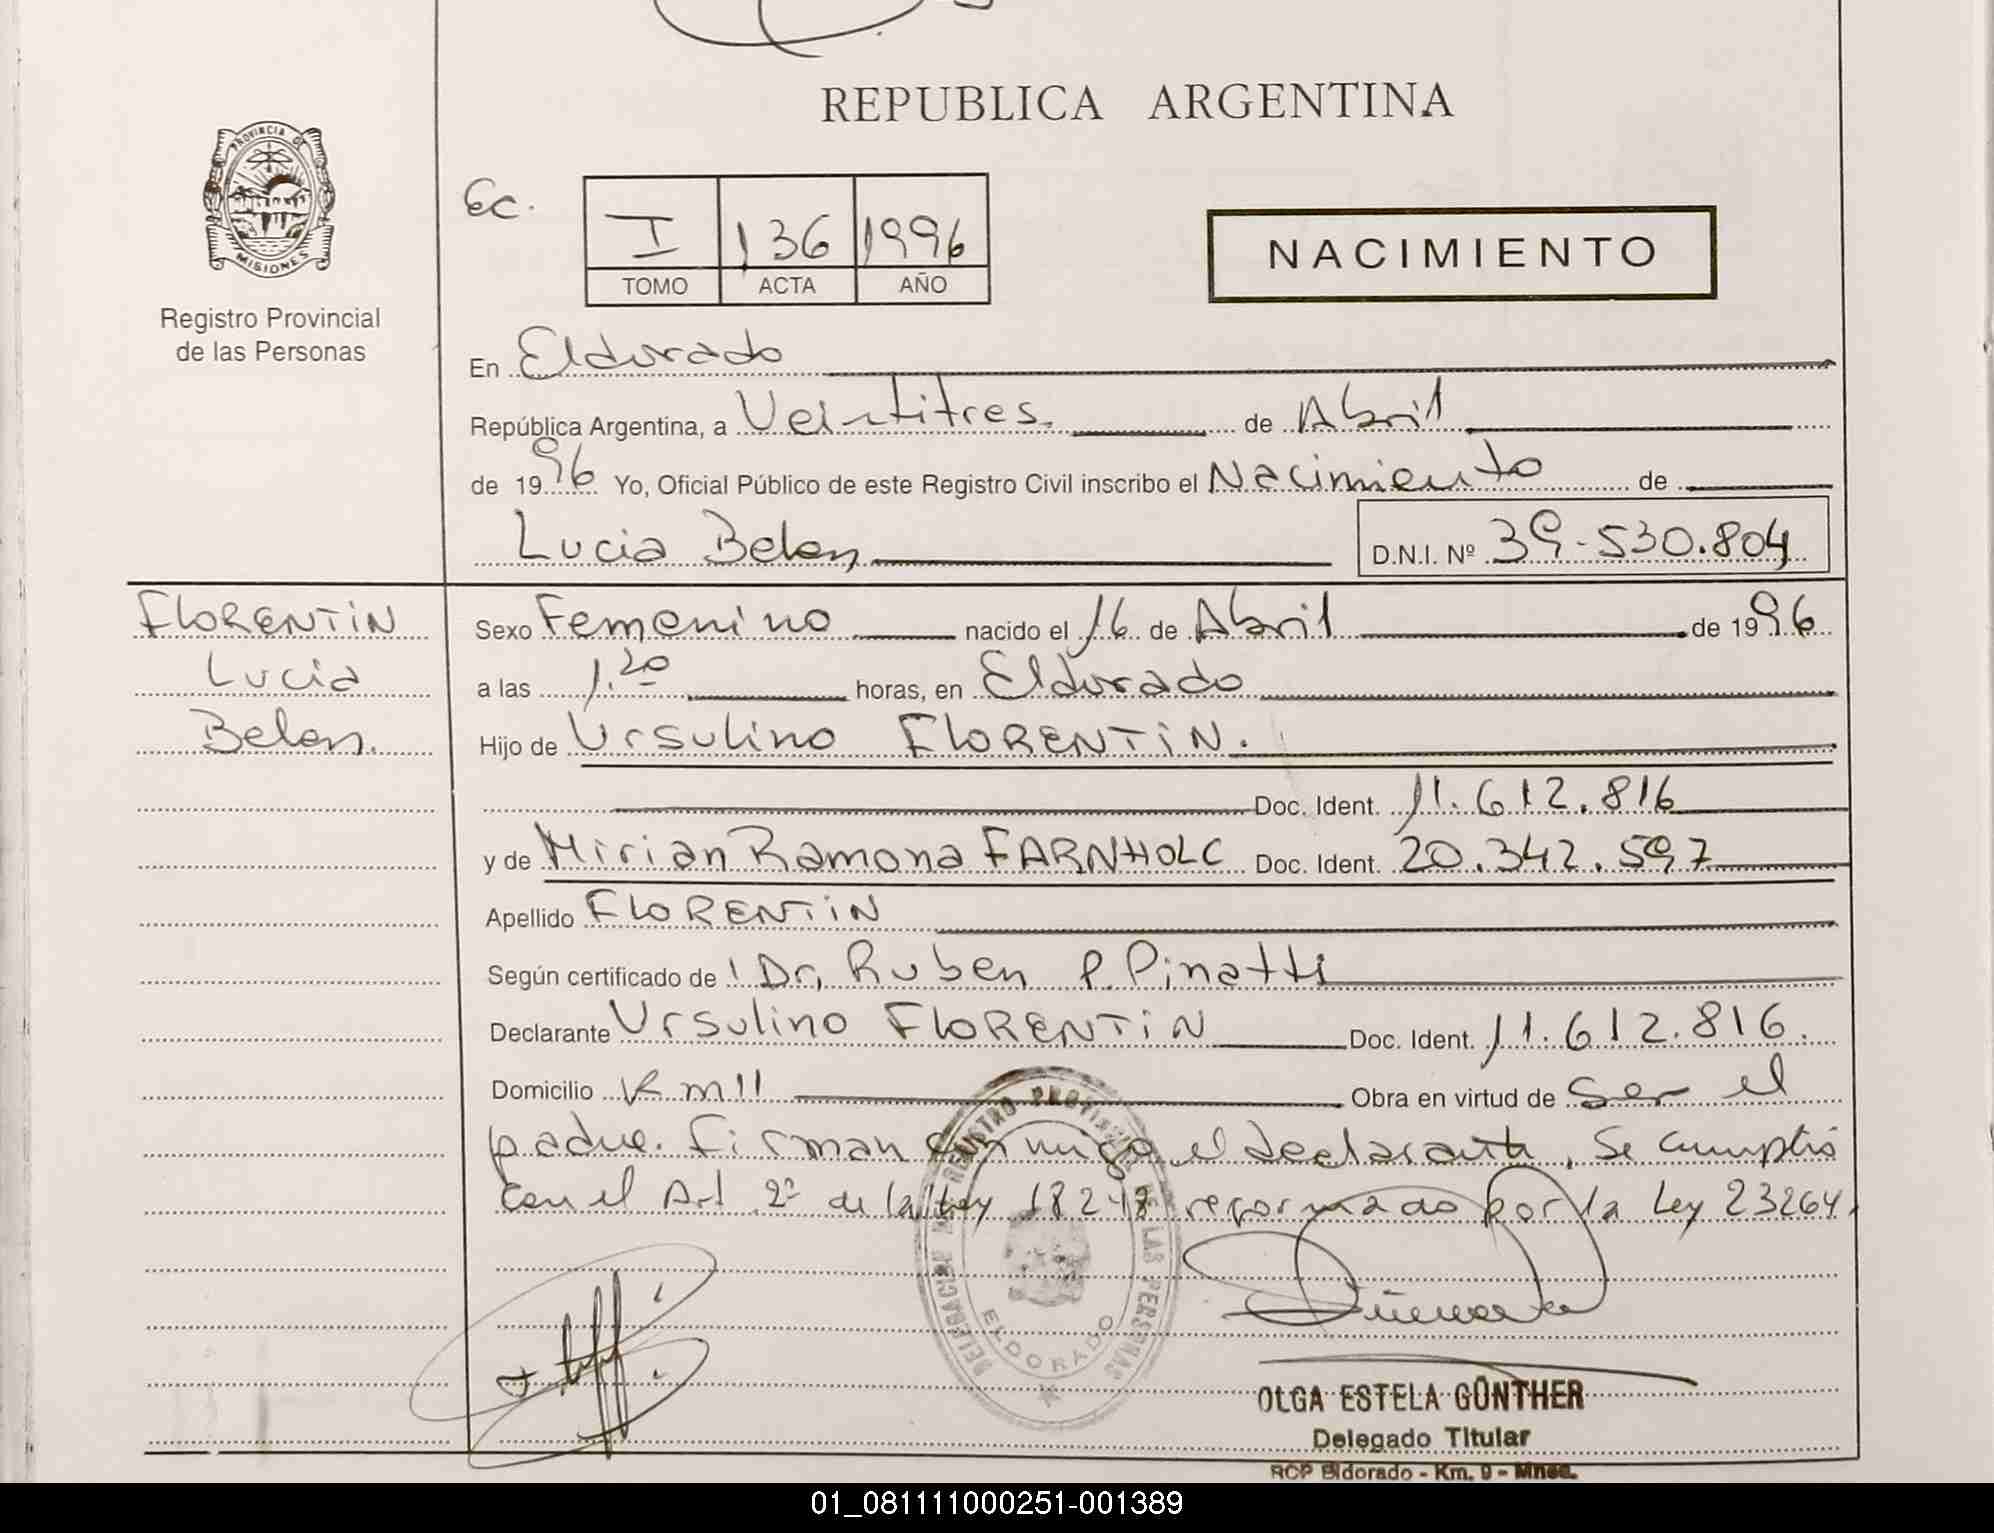 REPUBLICA ARGENTINA
PROVINCIA DE
MISIONES
Registro Provincial
de las Personas
Ec.
I 136 1996
TOMO ACTA AÑO
NACIMIENTO
En Eldorado
República Argentina, a Veintitres. de Abril
de 1996 Yo, Oficial Público de este Registro Civil inscribo el Nacimiento de
Lucia Belen D.N.I. Nº 39.530.804
FLORENTIN
Lucia
Belen.
Sexo Femenino nacido el 16 de Abril de 1996
a las 1.20 horas, en Eldorado
Hijo de Ursulino FLORENTIN.
Doc. Ident. 11.612.816
y de Mirian Ramona FARNHOLC Doc. Ident. 20.342.597
Apellido FLORENTIN
Según certificado de Dr. Ruben P. Pinatti
Declarante Ursulino FLORENTIN Doc. Ident. 11.612.816.
Domicilio Km 11 Obra en virtud de ser el
padre. Firman conmigo el declarante, se cumplió
con el Art 2º de la Ley 18248 reformado por la Ley 23264.
DELEGACION REGISTRO PROVINCIAL DE LAS PERSONAS
ELDORADO
OLGA ESTELA GÜNTHER
Delegado Titular
RCP Eldorado - Km. 9 - Mnes.
01_081111000251-001389